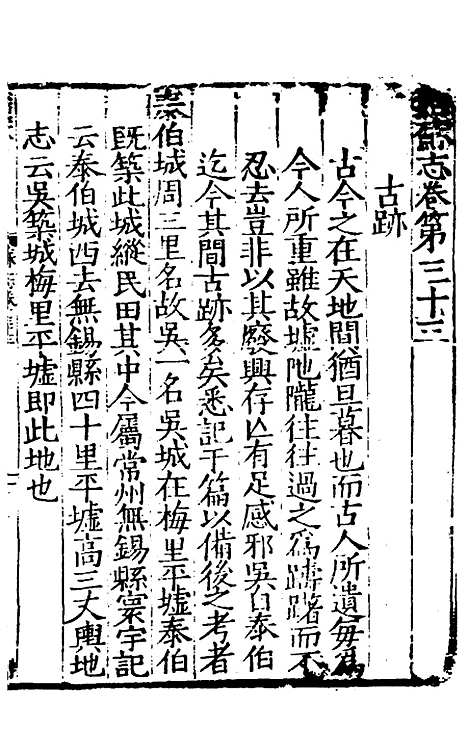 姑蘇志卷第三十三
古跡
古今之在天地間猶旦暮也而古人所遺每爲
今人所重雖故墟阤隴往往過之爲躊躇而不
忍去豈非以其廢興存亾有足感邪吳自泰伯
迄今其間古跡多矣悉記于篇以備後之考者
泰伯城周三里名故吳一名吳城在梅里平墟泰伯
旣築此城縱民田其中今屬常州無錫縣寰宇記
云泰伯城西去無錫縣四十里平墟高三丈輿地
志云吳築城梅里平墟即此地也